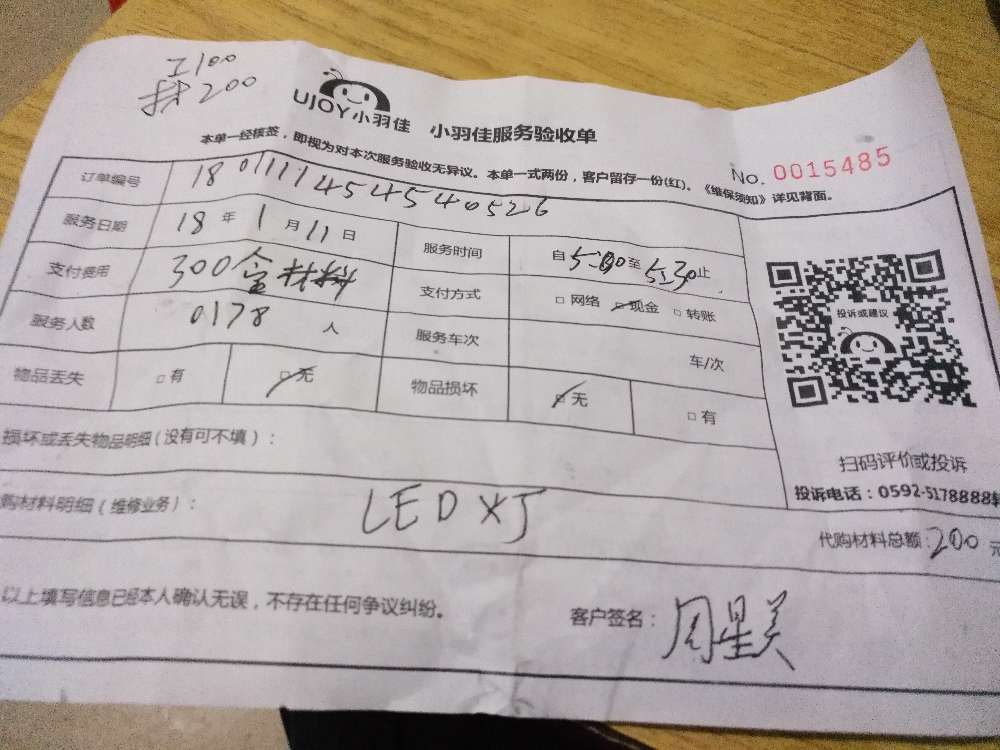 工100
材200
UJOY小羽佳 小羽佳服务验收单
本单一经核签，即视为对本次服务验收无异议。本单一式两份，客户留存一份(红)。《维保须知》详见背面。
No. 0015485
订单编号 180111145454540526
服务日期 18年1月11日 服务时间 自5:00至5:30止
支付费用 300含材料 支付方式 □网络 □现金 □转账
服务人数 0178人 服务车次 车/次
物品丢失 □有 □无 物品损坏 □无 □有
投诉或建议
扫码评价或投诉
投诉电话：0592-5178888转
损坏或丢失物品明细（没有可不填）：
购材料明细（维修业务）： LED灯
代购材料总额：200元
以上填写信息已经本人确认无误，不存在任何争议纠纷。 客户签名：周星美